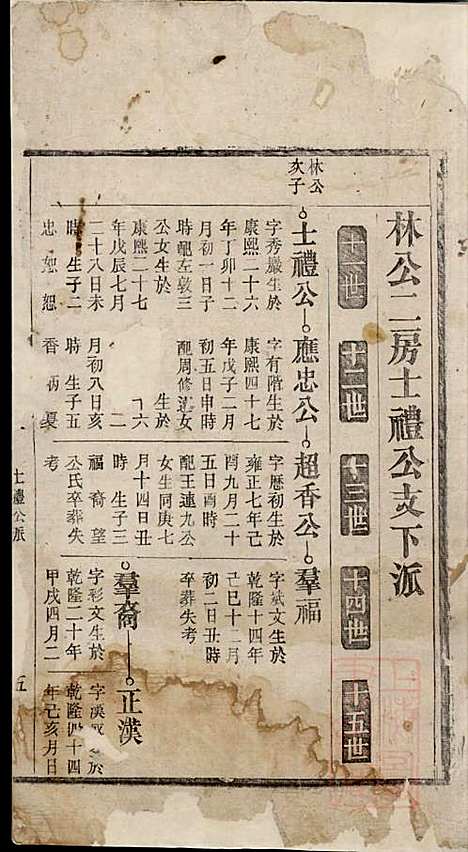 林公二房士禮公支下派
十一世
十二世
十三世
十四世
十五世
林公
次子
士禮公
應忠公
超香公
羣福
字秀嚴生於
康熙二十六
年丁卯十二
月初一日子
時配左敦三
公女生於
康熙二十七
年戊辰七月
二十八日未
時生子二
忠恕
字有階生於
康熙四十七
年戊子二月
初五日申時
配周修 女
生於
二
六
月初八日亥
時生子五
香
字曆初生於
雍正七年己
酉九月二十
五日酉時
配王連九公
女生同庚七
月十四日丑
時生子三
福裔望
公氏卒葬失
考
字斌文生於
乾隆十四年
己巳十二月
初二日丑時
卒葬失考
羣裔
正漢
字彩文生於
乾隆二十年
甲戌四月二
字漢 於
乾隆四十四
年己亥月日
士禮公派
五